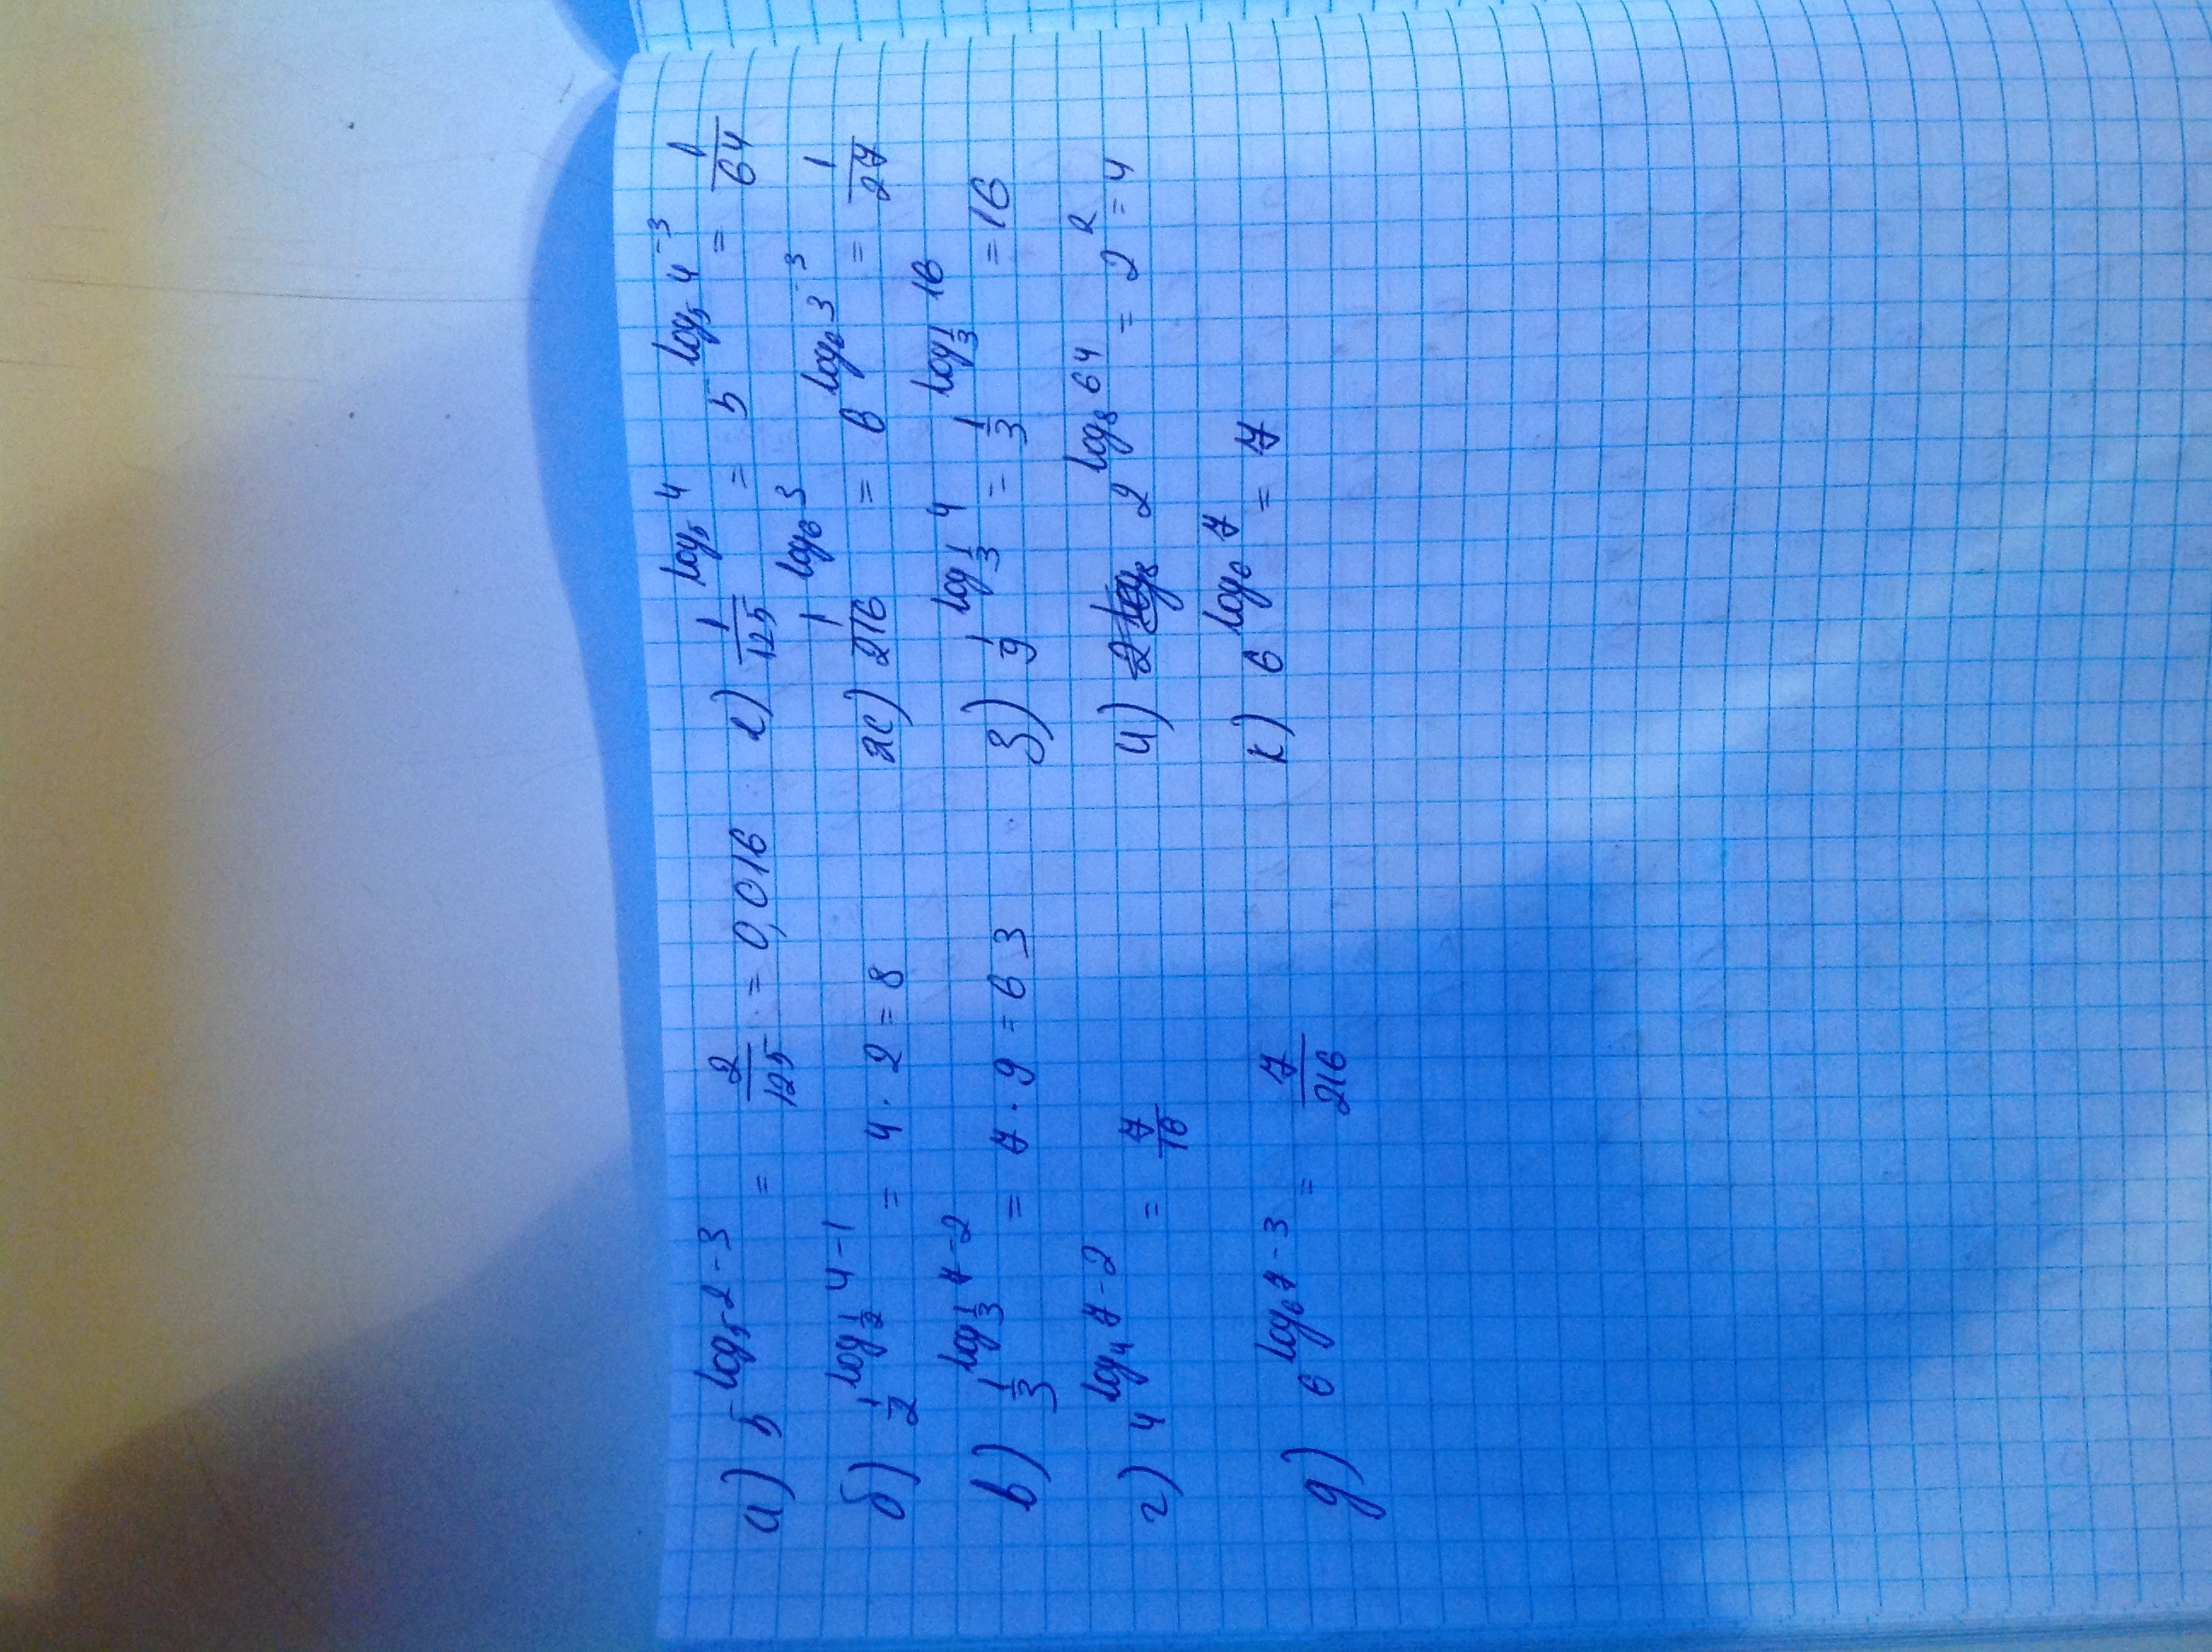 а) 5^(log₅2-3) = 2/125 = 0,016
б) 1/2^(log_(1/2) 4-1) = 4·2=8
в) 1/3^(log_(1/3) 7-2) = 7·9=63
г) 4^(log₄7-2) = 7/16
д) 6^(log₆7-3) = 7/216
е) 1/125^(log₅4) = 5^(log₅4⁻³) = 1/64
ж) 1/216^(log₆3) = 6^(log₆3⁻³) = 1/27
з) 1/9^(log_(1/3) 4) = 1/3^(log_(1/3) 16) = 16
и) 2^(log₈64) = 2² = 4
к) 6^(log₆7) = 7